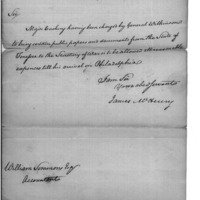 Sir
Major Cushing having been charged by General Wilkinson
to bring certain public papers and documents from the Seat of
to the Secretary of War is to be allowed
expences till his arrival in Philadelphia.
I am Sir
Your obed servant
James McHenry
William Simmons Esq
Accountant